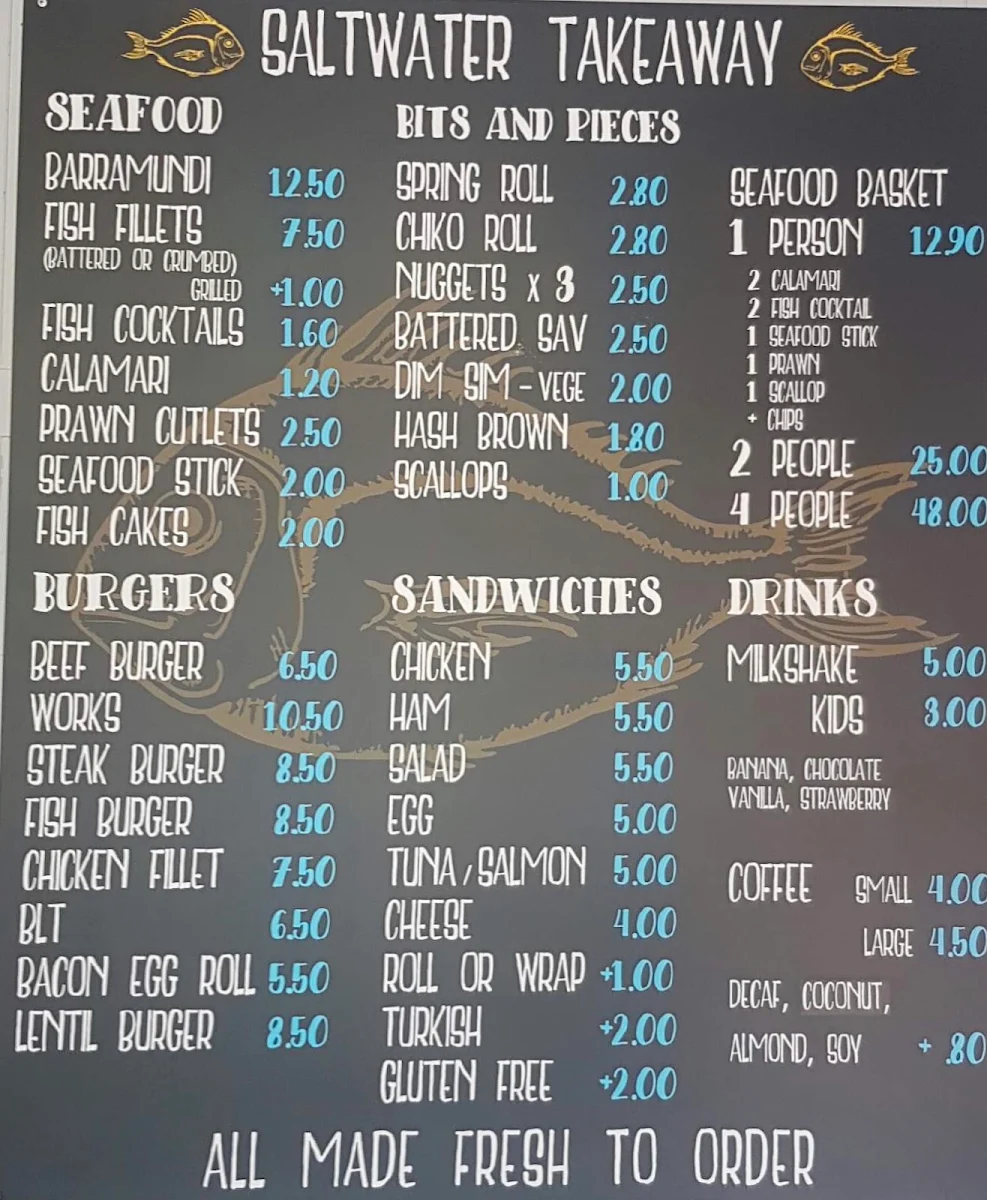 SALTWATER TAKEAWAY
SEAFOOD
BARRAMUNDI 12.50
FISH FILLETS 7.50
(BATTERED OR CRUMBED)
GRILLED +1.00
FISH COCKTAILS 1.60
CALAMARI 1.20
PRAWN CUTLETS 2.50
SEAFOOD STICK 2.00
FISH CAKES 2.00
BITS AND PIECES
SPRING ROLL 2.80
CHIKO ROLL 2.80
NUGGETS X 3 2.50
BATTERED SAV 2.50
DIM SIM - VEGE 2.00
HASH BROWN 1.80
SCALLOPS 1.00
SEAFOOD BASKET
1 PERSON 12.90
2 CALAMARI
2 FISH COCKTAIL
1 SEAFOOD STICK
1 PRAWN
1 SCALLOP
+ CHIPS
2 PEOPLE 25.00
4 PEOPLE 48.00
BURGERS
BEEF BURGER 6.50
WORKS 10.50
STEAK BURGER 8.50
FISH BURGER 8.50
CHICKEN FILLET 7.50
BLT 6.50
BACON EGG ROLL 5.50
LENTIL BURGER 8.50
SANDWICHES
CHICKEN 5.50
HAM 5.50
SALAD 5.50
EGG 5.00
TUNA / SALMON 5.00
CHEESE 4.00
ROLL OR WRAP +1.00
TURKISH +2.00
GLUTEN FREE +2.00
DRINKS
MILKSHAKE 5.00
KIDS 3.00
BANANA, CHOCOLATE
VANILLA, STRAWBERRY
COFFEE SMALL 4.00
LARGE 4.50
DECAF, COCONUT,
ALMOND, SOY + .80
ALL MADE FRESH TO ORDER